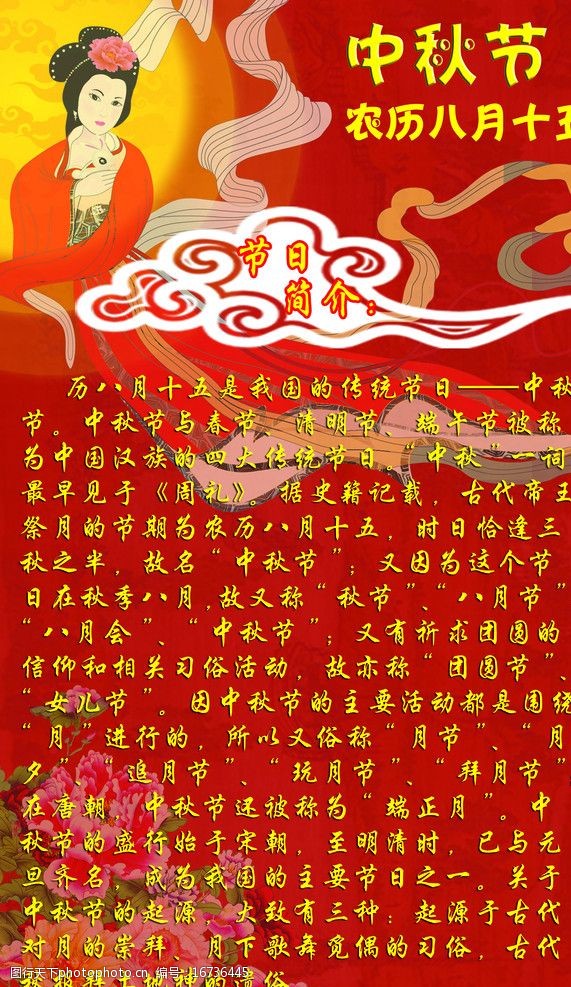 中秋节
农历八月十五
节日
简介：
历八月十五是我国的传统节日——中秋
节。中秋节与春节、清明节、端午节被称
为中国汉族的四大传统节日。“中秋”一词
最早见于《周礼》。据史籍记载，古代帝王
祭月的节期为农历八月十五，时日恰逢三
秋之半，故名“中秋节”；又因为这个节
日在秋季八月,故又称“秋节”、“八月节”
“八月会”、“中秋节”；又有祈求团圆的
信仰和相关习俗活动，故亦称“团圆节”、
“女儿节”。因中秋节的主要活动都是围绕
“月”进行的，所以又俗称“月节”、“月
夕”、“追月节”、“玩月节”、“拜月节”
在唐朝，中秋节还被称为“端正月”。中
秋节的盛行始于宋朝，至明清时，已与元
旦齐名，成为我国的主要节日之一。关于
中秋节的起源，大致有三种：起源于古代
对月的崇拜、月下歌舞觅偶的习俗，古代
秋报拜土地神的遗俗
图行天下photophoto.cn 编号：16736445